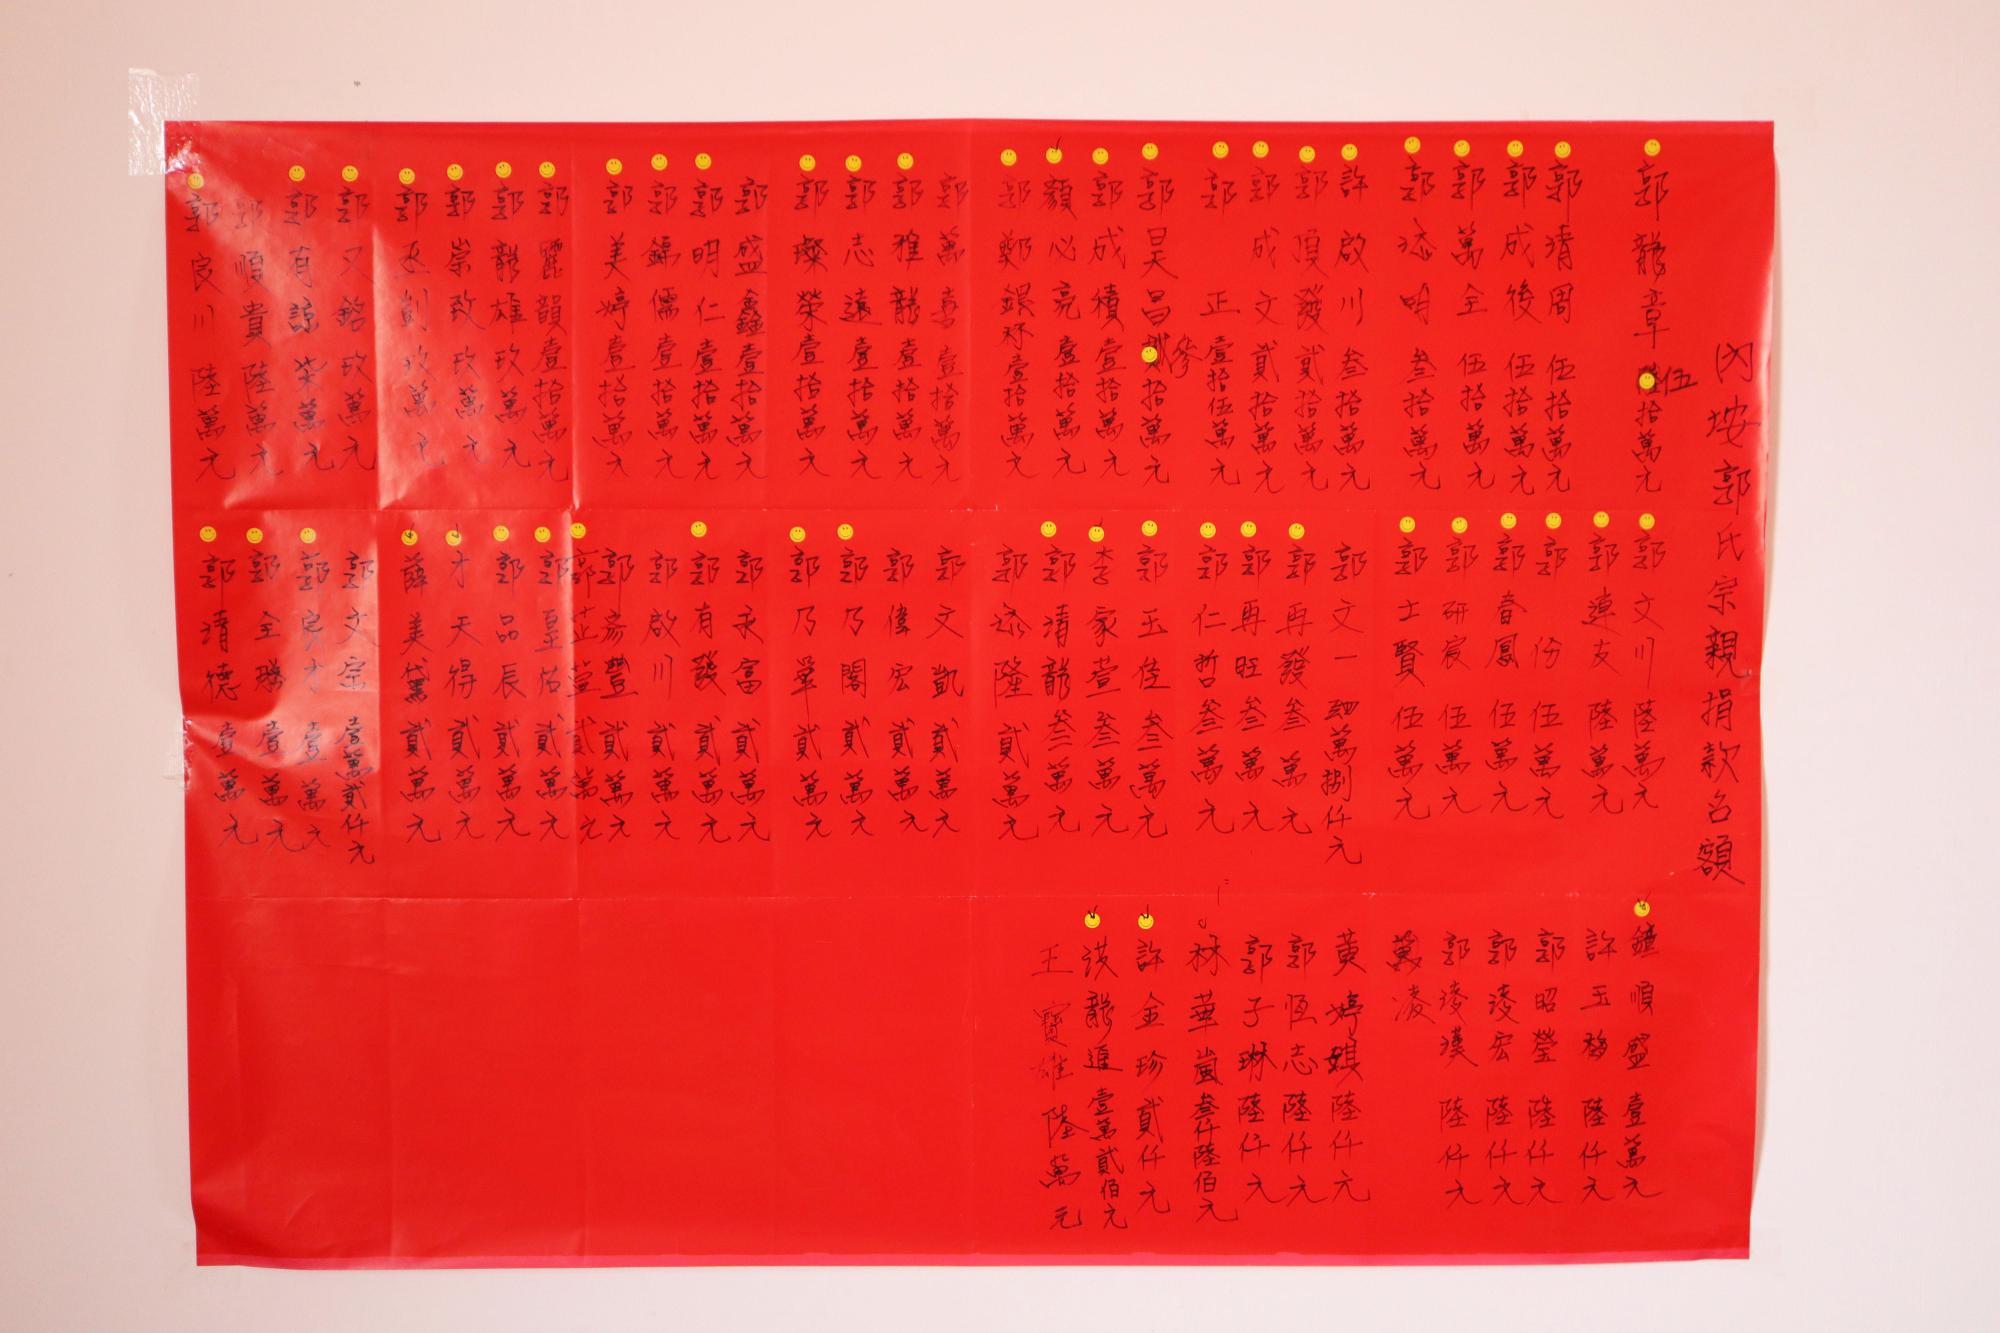 內垵郭氏宗親捐款名額
郭龍章伍拾萬元
郭清周伍拾萬元
郭成後伍拾萬元
郭萬全伍拾萬元
郭添明叁拾萬元
許啟川叁拾萬元
郭頂發貳拾萬元
郭成文貳拾萬元
郭正壹拾伍萬元
郭昊昌參拾萬元
郭成積壹拾萬元
顏必亮壹拾萬元
郭鄭銀冧壹拾萬元
郭萬壹拾萬元
郭雅龍壹拾萬元
郭志遠壹拾萬元
郭燦榮壹拾萬元
郭盛鑫壹拾萬元
郭明仁壹拾萬元
郭錦儒壹拾萬元
郭美婷壹拾萬元
郭麗韻壹拾萬元
郭龍雄玖萬元
郭崇致玖萬元
郭丕釗玖萬元
郭又銘玖萬元
郭有諒柒萬元
郭順貴陸萬元
郭良川陸萬元
郭文川陸萬元
郭連友陸萬元
郭份伍萬元
郭春鳳伍萬元
郭研宸伍萬元
郭士賢伍萬元
郭文一肆萬捌仟元
郭再發叁萬元
郭再旺叁萬元
郭仁哲叁萬元
郭玉佳叁萬元
李家萱叁萬元
郭清龍叁萬元
郭添隆貳萬元
郭文凱貳萬元
郭偉宏貳萬元
郭乃閣貳萬元
郭乃單貳萬元
郭永富貳萬元
郭有發貳萬元
郭啟川貳萬元
郭彥豐貳萬元
郭芷萱貳萬元
郭皇佑貳萬元
郭品辰貳萬元
才天得貳萬元
薛美黛貳萬元
郭文宗壹萬貳仟元
郭宗才壹萬元
郭全勝壹萬元
郭清德壹萬元
鐘順盛壹萬元
許玉梅陸仟元
郭昭瑩陸仟元
郭凌宏陸仟元
郭凌漢陸仟元
萬凌
黃婷媖陸仟元
郭恆志陸仟元
郭子琳陸仟元
林華嵐叁仟陸佰元
許金珍貳仟元
洪龍進壹萬貳佰元
王寶雄陸萬元